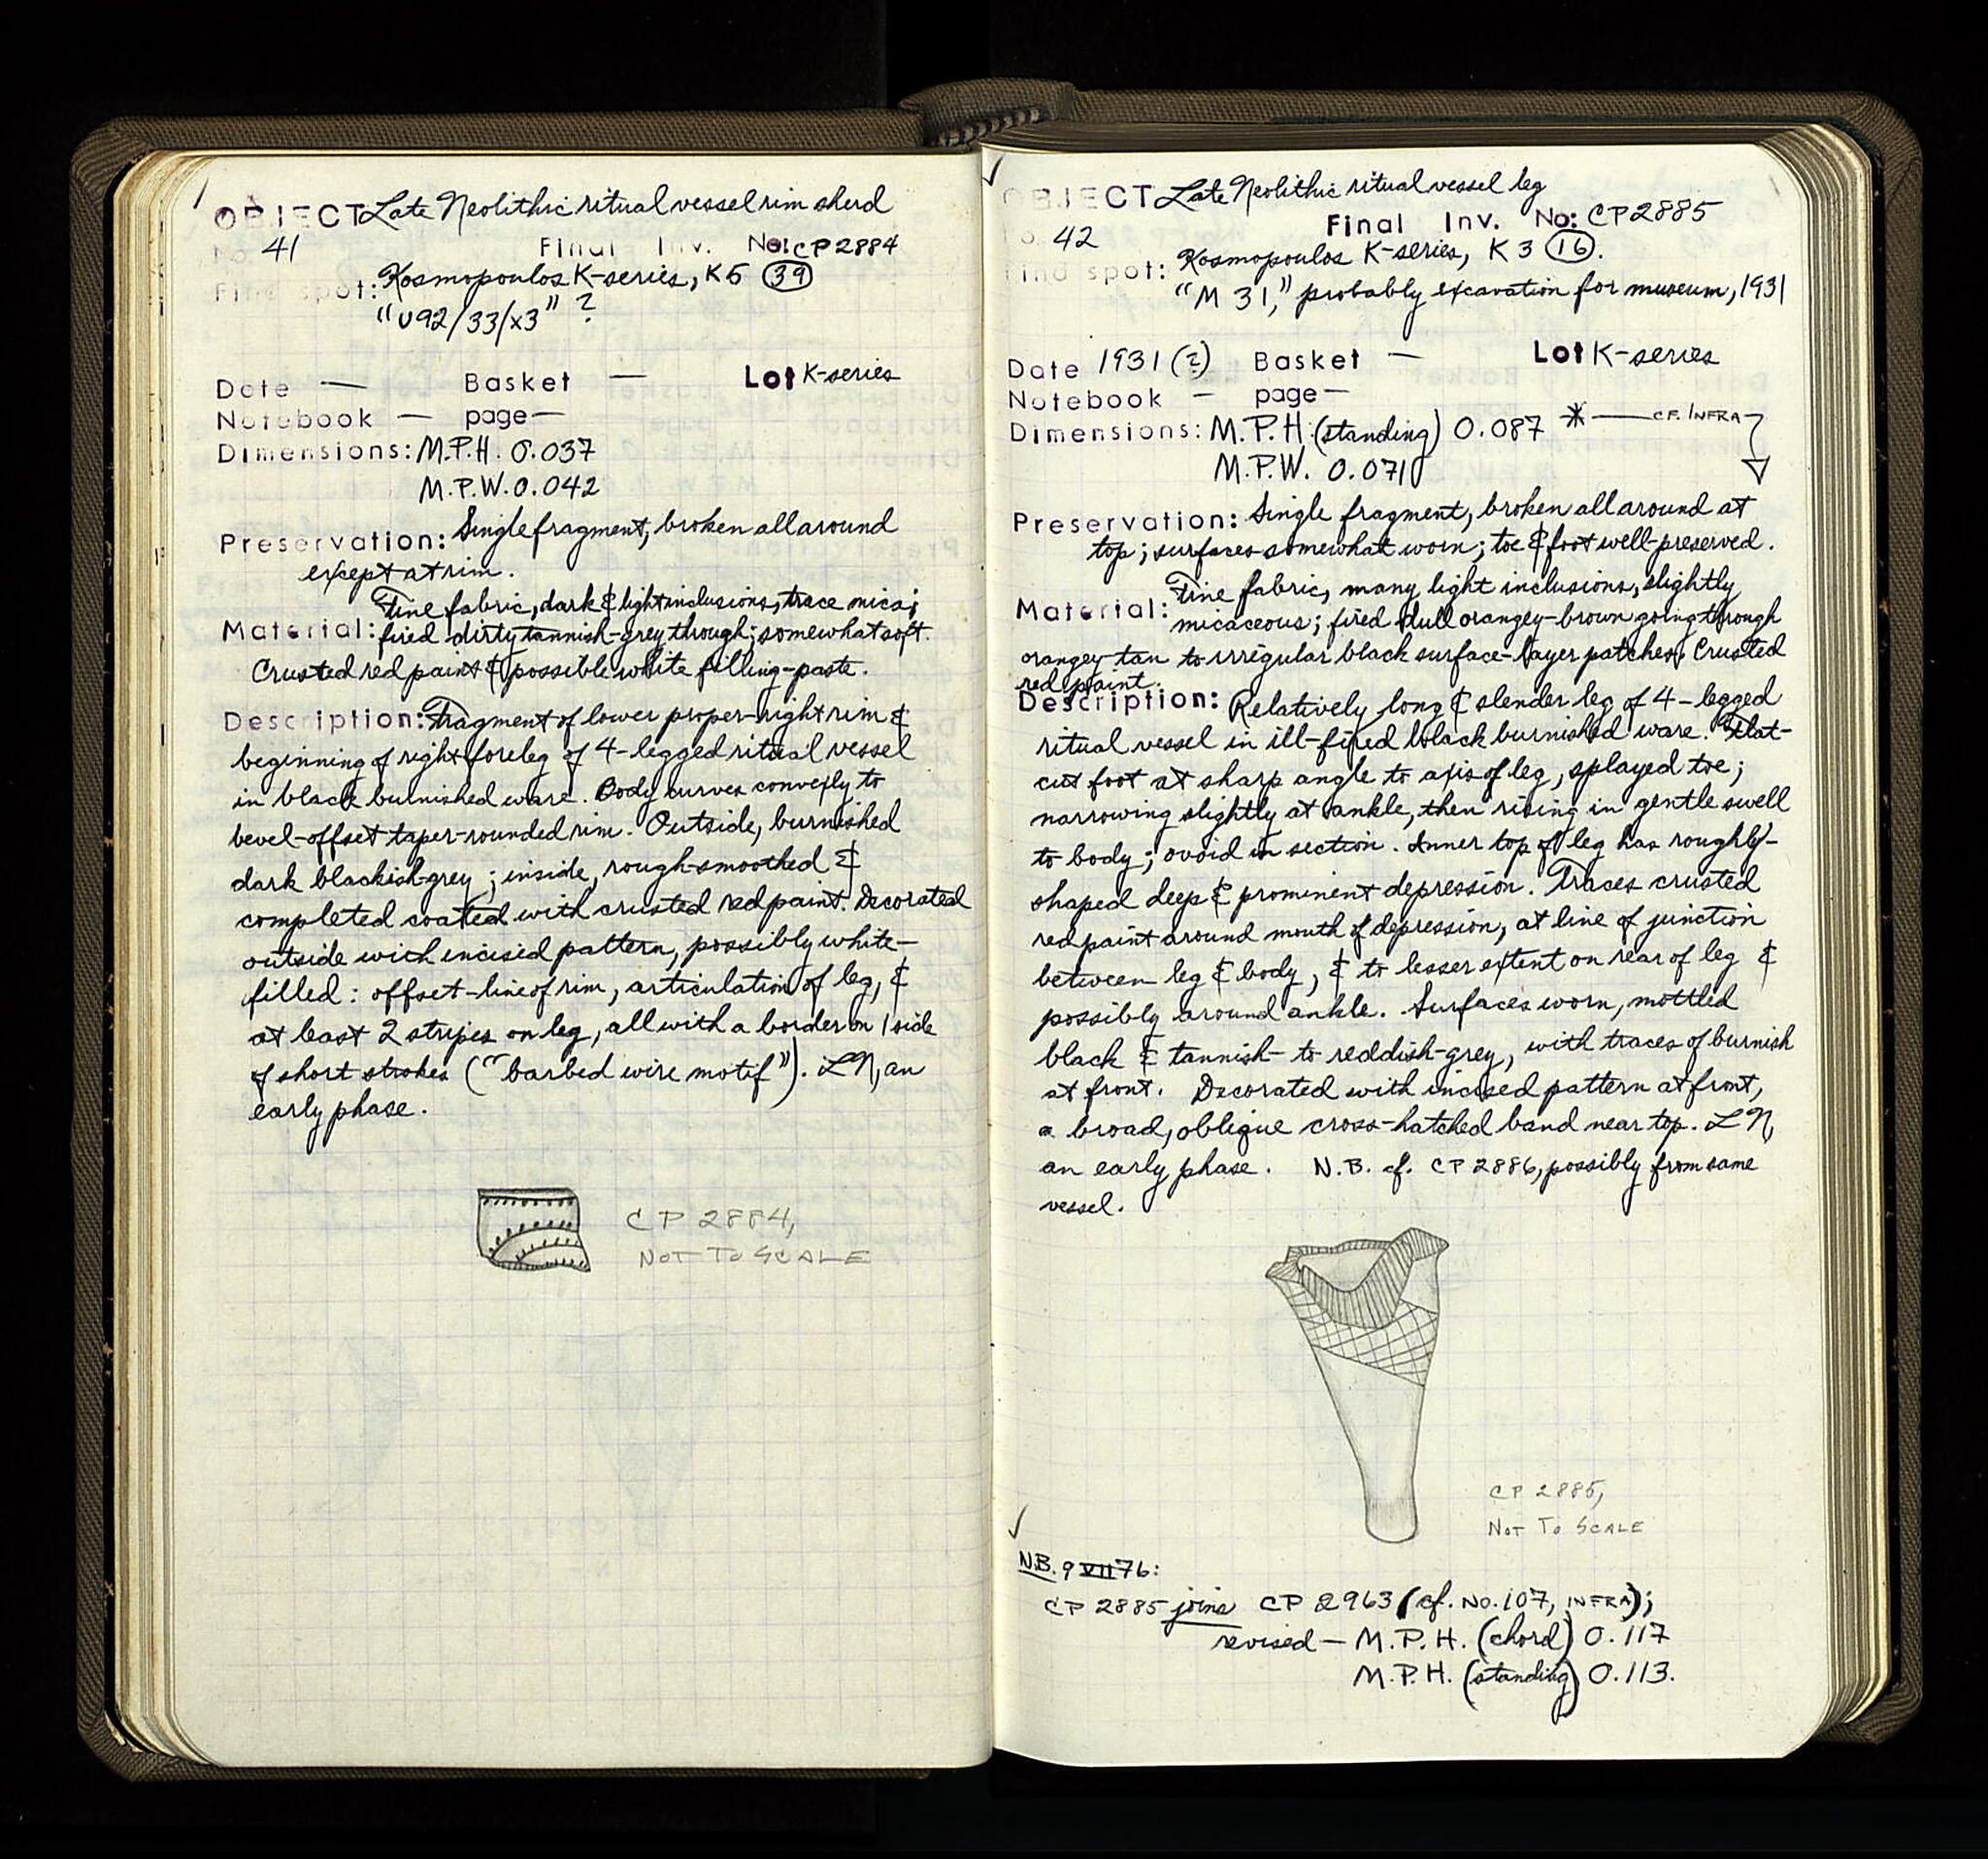 OBJECT Late Neolithic ritual vessel rim sherd
No. 41 Final Inv. No: CP 2884
Find spot: Kosmopoulos K-series, K5 (39)
"U92/33/x3" ?
Date — Basket — Lot K-series
Notebook — page —
Dimensions: M.P.H. 0.037
M.P.W. 0.042
Preservation: Single fragment, broken all around
except at rim.
Fine fabric, dark & light inclusions, trace mica;
Material: fired dirty tannish-grey through; somewhat soft.
Crusted red paint & possible white filling-paste.
Description: Fragment of lower proper-right rim &
beginning of right foreleg of 4-legged ritual vessel
in black burnished ware. Body curves convexly to
bevel-offset taper-rounded rim. Outside, burnished
dark blackish-grey; inside, rough-smoothed &
completed coated with crusted red paint. Decorated
outside with incised pattern, possibly white-
filled: offset-line of rim, articulation of leg, &
at least 2 stripes on leg, all with a border on 1 side
of short strokes ("barbed wire motif"). LN, an
early phase.
CP 2884,
NOT TO SCALE
OBJECT Late Neolithic ritual vessel leg
Final Inv. No: CP 2885
No. 42
Find spot: Kosmopoulos K-series, K 3 (16).
"M 31," probably excavation for museum, 1931
Date 1931 (?) Basket — Lot K-series
Notebook — page —
Dimensions: M.P.H. (standing) 0.087 * — CF. INFRA
M.P.W. 0.071
Preservation: Single fragment, broken all around at
top; surfaces somewhat worn; toe & foot well-preserved.
Fine fabric, many light inclusions, slightly
Material: micaceous; fired dull orangey-brown going through
orangey-tan to irregular black surface-layer patches. Crusted
red paint.
Description: Relatively long & slender leg of 4-legged
ritual vessel in ill-fired black burnished ware. Flat-
cut foot at sharp angle to axis of leg, splayed toe;
narrowing slightly at ankle, then rising in gentle swell
to body; ovoid in section. Inner top of leg has roughly-
shaped deep & prominent depression. Traces crusted
red paint around mouth of depression, at line of junction
between leg & body, & to lesser extent on rear of leg &
possibly around ankle. Surfaces worn, mottled
black & tannish- to reddish-grey, with traces of burnish
at front. Decorated with incised pattern at front,
a broad, oblique cross-hatched band near top. LN,
an early phase. N.B. cf. CP 2886, possibly from same
vessel.
CP 2885,
NOT TO SCALE
N.B. 9 VII 76:
CP 2885 joins CP 2963 (cf. NO. 107, INFRA);
revised — M.P.H. (chord) 0.117
M.P.H. (standing) 0.113.